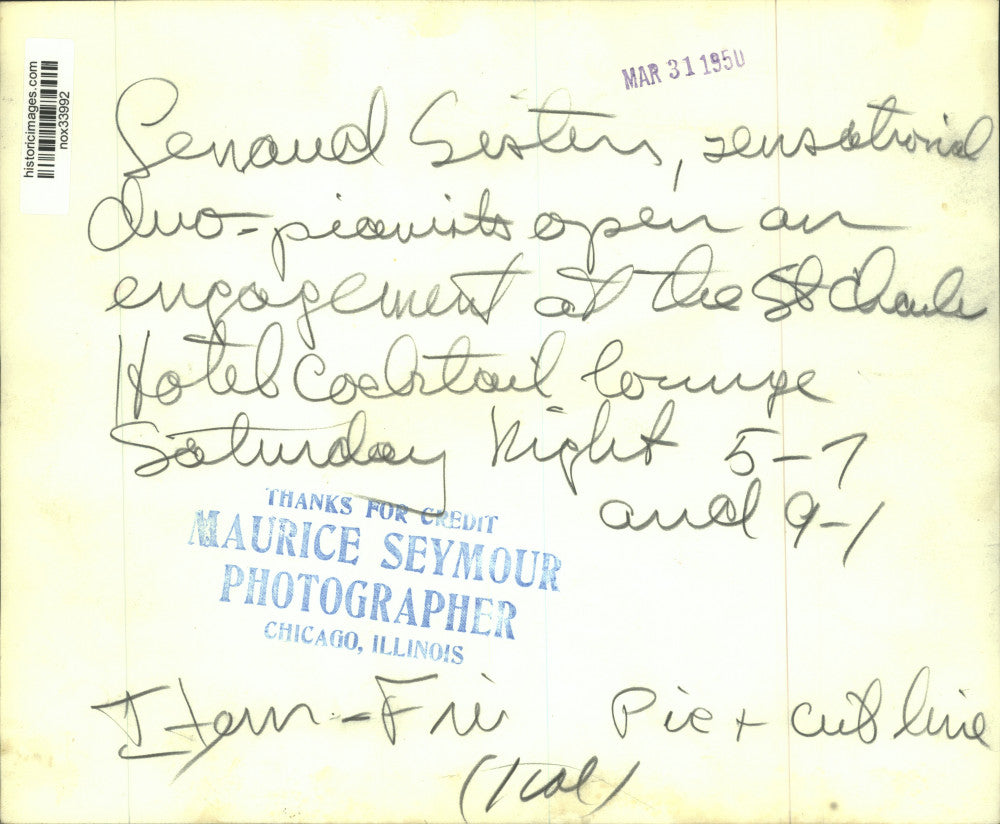 MAR 31 1950
historicimages.com
nox33992
Senaud Sisters, sensational
duo-pianists open an
engagement at the St Charles
Hotel Cocktail lounge
Saturday Night 5-7
and 9-1
THANKS FOR CREDIT
MAURICE SEYMOUR
PHOTOGRAPHER
CHICAGO, ILLINOIS
Item - Fri Pic + cut line
(1 col)